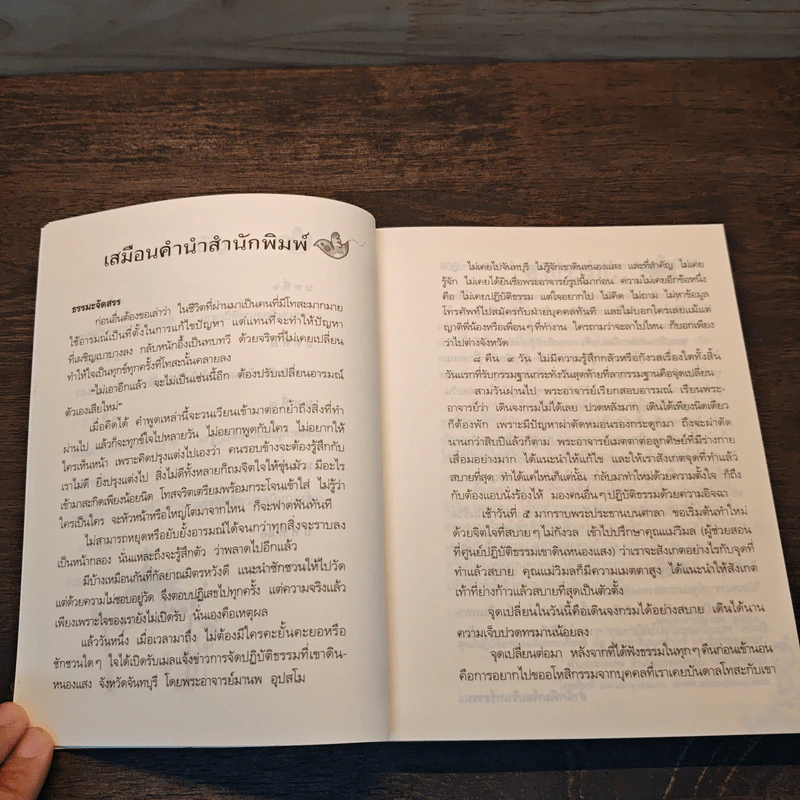 เสมือนคำนำสำนักพิมพ์
ธรรมะจัดสรร
ก่อนอื่นต้องขอเล่าว่า ในชีวิตที่ผ่านมาเป็นคนที่มีโทสะมากมาย
ใช้อารมณ์เป็นที่ตั้งในการแก้ไขปัญหา แต่แทนที่จะทำให้ปัญหา
ที่เผชิญเบาบางลง กลับหนักอึ้งเป็นทบทวี ด้วยจริตที่ไม่เคยเปลี่ยน
ทำให้ใจเป็นทุกข์ทุกครั้งที่โทสะนั้นคลายลง
"ไม่เอาอีกแล้ว จะไม่เป็นเช่นนี้อีก ต้องปรับเปลี่ยนอารมณ์
ตัวเองเสียใหม่"
เมื่อคิดได้ คำพูดเหล่านี้จะวนเวียนเข้ามาตอกย้ำถึงสิ่งที่ทำ
ผ่านไป แล้วก็จะทุกข์ใจไปหลายวัน ไม่อยากพูดกับใคร ไม่อยากให้
ใครเห็นหน้า เพราะคิดปรุงแต่งไปเองว่า คนรอบข้างจะต้องรู้สึกกับ
เราไม่ดี ยิ่งปรุงแต่งไป สิ่งไม่ดีทั้งหลายก็ถมจิตใจให้ขุ่นมัว มีอะไร
เข้ามาสะกิดเพียงน้อยนิด โทสจริตเตรียมพร้อมกระโจนเข้าใส่ ไม่รู้ว่า
ใครเป็นใคร จะหัวหน้าหรือใหญ่โตมาจากไหน ก็จะฟาดฟันทันที
ไม่สามารถหยุดหรือยับยั้งอารมณ์ได้จนกว่าทุกสิ่งจะราบลง
เป็นหน้ากลอง นั่นแหละถึงจะรู้สึกตัว ว่าพลาดไปอีกแล้ว
มีบ้างเหมือนกันที่กัลยาณมิตรหวังดี แนะนำชักชวนให้ไปวัด
แต่ด้วยความไม่ชอบอยู่วัด จึงตอบปฏิเสธไปทุกครั้ง แต่ความจริงแล้ว
เพียงเพราะใจของเรายังไม่เปิดรับ นั่นเองคือเหตุผล
แล้ววันหนึ่ง เมื่อเวลามาถึง ไม่ต้องมีใครคะยั้นคะยอหรือ
ชักชวนใดๆ ใจได้เปิดรับเมลแจ้งข่าวการจัดปฏิบัติธรรมที่เขาดิน-
หนองแสง จังหวัดจันทบุรี โดยพระอาจารย์มานพ อุปสโม
ไม่เคยไปจันทบุรี ไม่รู้จักเขาดินหนองแสง และที่สำคัญ ไม่เคย
รู้จัก ไม่เคยได้ยินชื่อพระอาจารย์รูปนี้มาก่อน ความไม่เคยอีกข้อหนึ่ง
คือ ไม่เคยปฏิบัติธรรม แต่ใจอยากไป ไม่คิด ไม่ถาม ไม่หาข้อมูล
โทรศัพท์ไปสมัครกับฝ่ายบุคคลทันที และไม่บอกใครเลยแม้แต่
ญาติพี่น้องหรือเพื่อนๆที่ทำงาน ใครถามว่าจะลาไปไหน ก็บอกเพียง
ว่าไปต่างจังหวัด
๘ คืน ๙ วัน ไม่มีความรู้สึกกลัวหรือกังวลเรื่องใดทั้งสิ้น
วันแรกที่รับกรรมฐานกระทั่งวันสุดท้ายที่ลากรรมฐานคือจุดเปลี่ยน
สามวันผ่านไป พระอาจารย์เรียกสอบอารมณ์ เรียนพระ-
อาจารย์ว่า เดินจงกรมไม่ได้เลย ปวดหลังมาก เดินได้เพียงนิดเดียว
ก็ต้องพัก เพราะมีปัญหาผ่าตัดหมอนรองกระดูกมา ถึงจะผ่าตัด
นานกว่าสิบปีแล้วก็ตาม พระอาจารย์เมตตาต่อลูกศิษย์ที่มีร่างกาย
เสื่อมอย่างมาก ได้แนะนำให้แก้ไข และให้เราสังเกตจุดที่ทำแล้ว
สบายที่สุด ทำได้แค่ไหนก็แค่นั้น กลับมาทำใหม่ด้วยความตั้งใจ ก็ถึง
กับต้องแอบนั่งร้องไห้ มองคนอื่นๆปฏิบัติธรรมด้วยความอิจฉา
เช้าวันที่ ๕ มากราบพระประธานบนศาลา ขอเริ่มต้นทำใหม่
ด้วยจิตใจที่สบายๆไม่กังวล เข้าไปปรึกษาคุณแม่วิมล (ผู้ช่วยสอน
ที่ศูนย์ปฏิบัติธรรมเขาดินหนองแสง) ว่าเราจะสังเกตอย่างไรกับจุดที่
ทำแล้วสบาย คุณแม่วิมลก็มีความเมตตาสูง ได้แนะนำให้สังเกต
เท้าที่ย่างก้าวแล้วสบายที่สุดเป็นตัวตั้ง
จุดเปลี่ยนในวันนี้คือเดินจงกรมได้อย่างสบาย เดินได้นาน
ความเจ็บปวดทรมานน้อยลง
จุดเปลี่ยนต่อมา หลังจากที่ได้ฟังธรรมในทุกๆคืนก่อนเข้านอน
คือการอยากไปขออโหสิกรรมจากบุคคลที่เราเคยบันดาลโทสะกับเขา